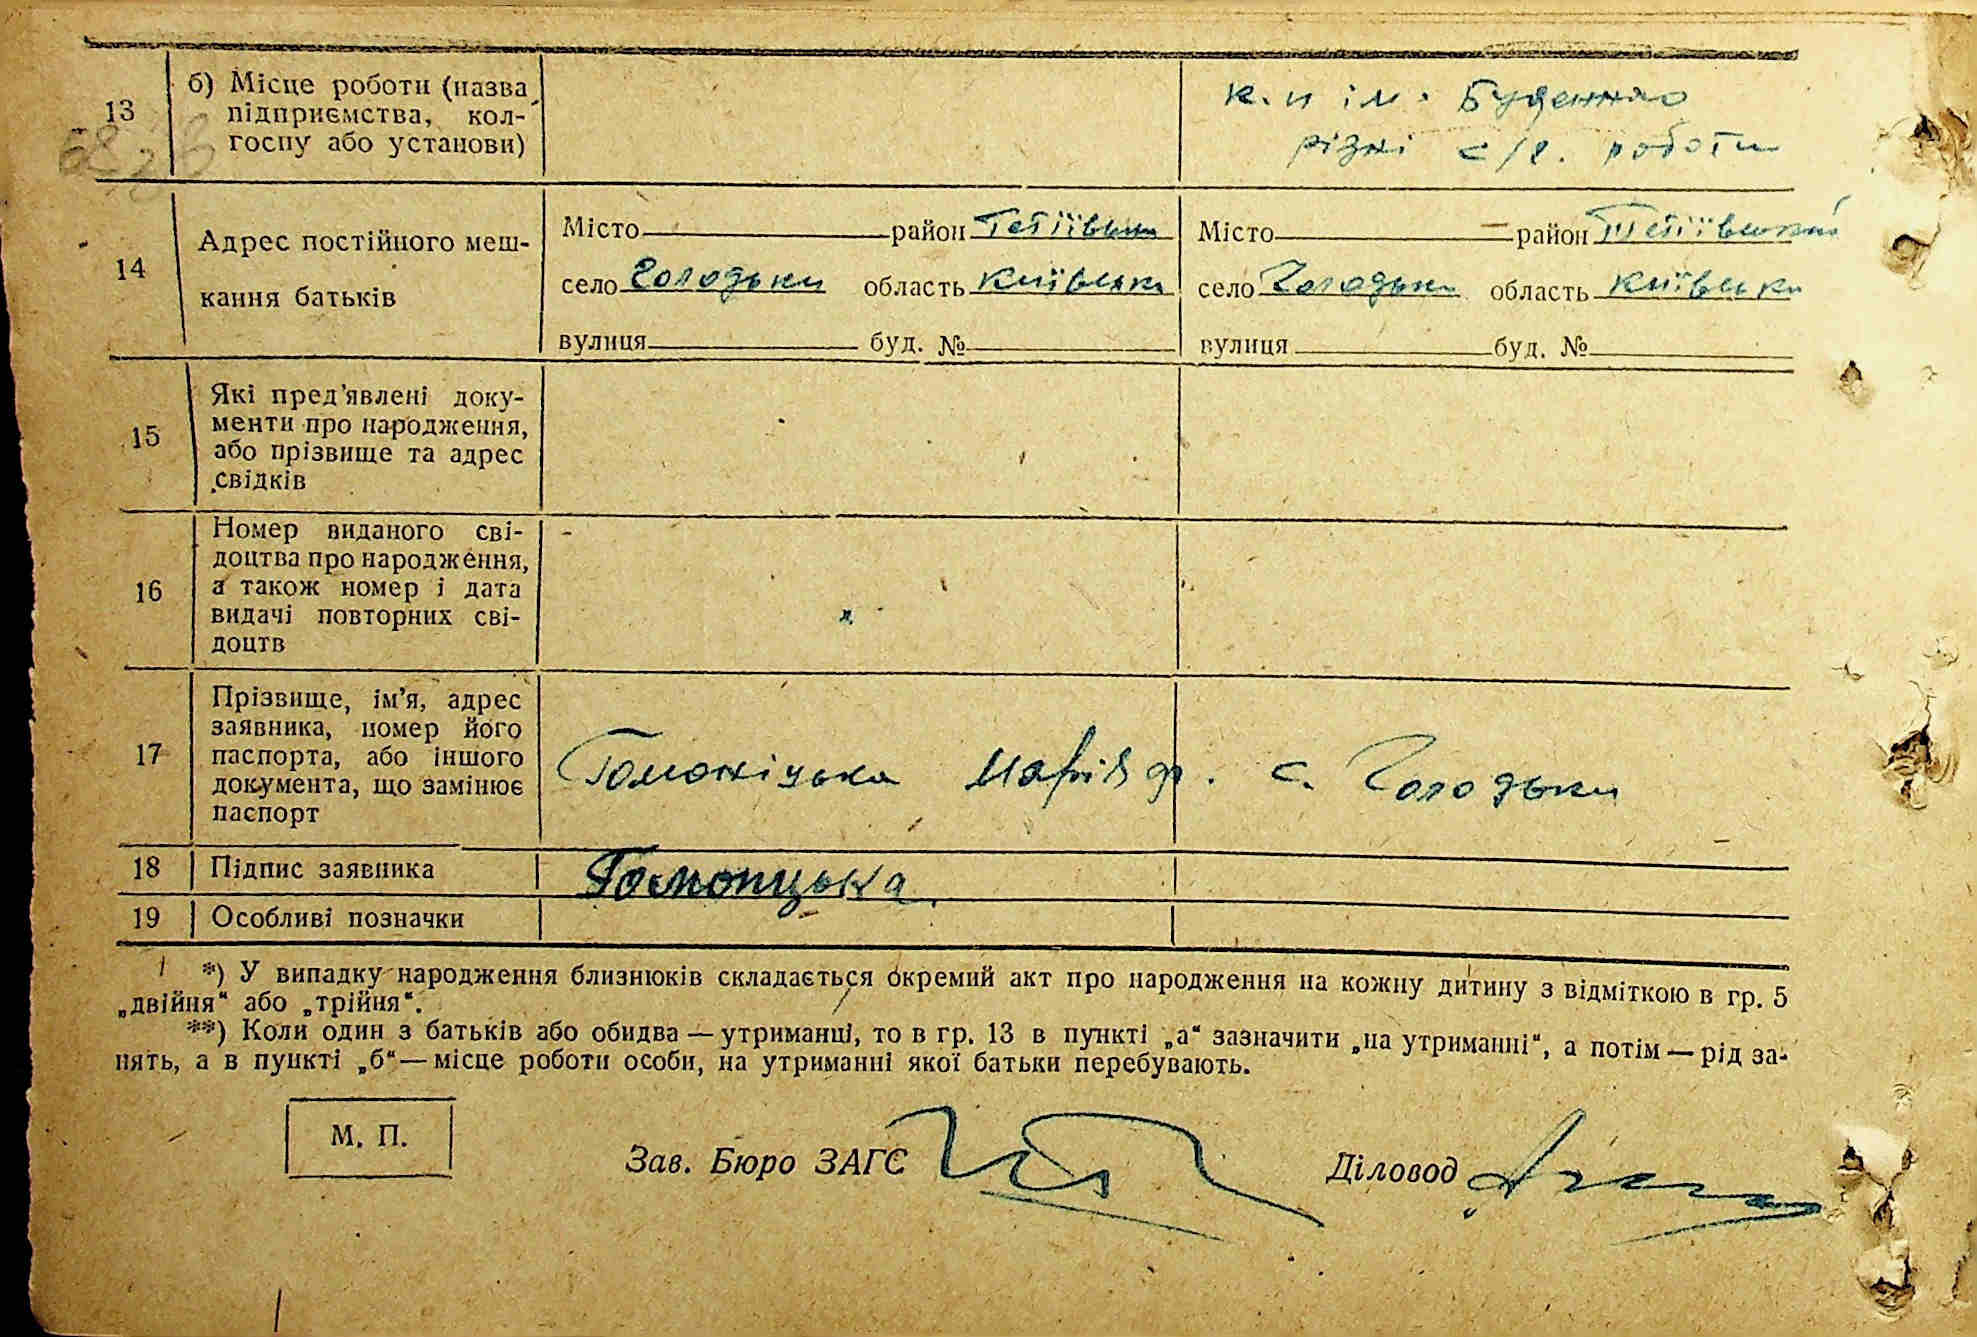 13
б) Місце роботи (назва
підприємства, кол-
госпу або установи)
к. п ім. Буденного
різні с/г. роботи
14
Адрес постійного меш-
кання батьків
Місто район Тетіївськ
село Голодьки область Київська
вулиця буд. №
Місто район Тетіївський
село Голодьки область Київська
вулиця буд. №
15
Які пред'явлені доку-
менти про народження,
або прізвище та адрес
свідків
16
Номер виданого сві-
доцтва про народження,
а також номер і дата
видачі повторних сві-
доцтв
17
Прізвище, ім'я, адрес
заявника, номер його
паспорта, або іншого
документа, що замінює
паспорт
Марія с. Голодьки
18 Підпис заявника
19 Особливі позначки
*) У випадку народження близнюків складається окремий акт про народження на кожну дитину з відміткою в гр. 5
„двійня“ або „трійня“.
**) Коли один з батьків або обидва — утриманці, то в гр. 13 в пункті „а“ зазначити „на утриманні“, а потім — рід за-
нять, а в пункті „б“ — місце роботи особи, на утриманні якої батьки перебувають.
М. П.
Зав. Бюро ЗАГС
Діловод